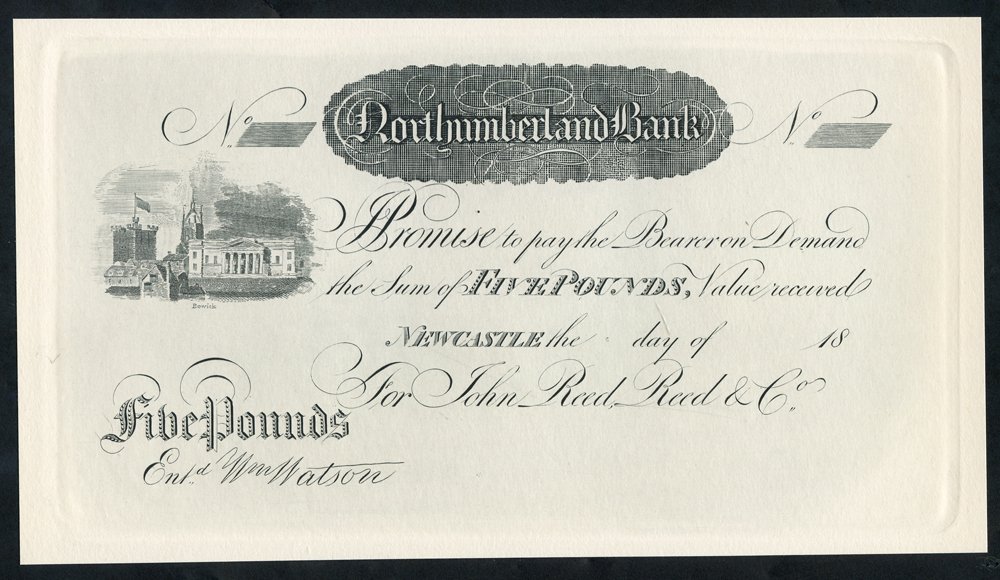 No Northumberland Bank No
Bewick
I Promise to pay the Bearer on Demand
the Sum of FIVE POUNDS, Value received
NEWCASTLE the day of 18
For John Reed, Reed & Co.
Five Pounds
Entd. Wm Watson